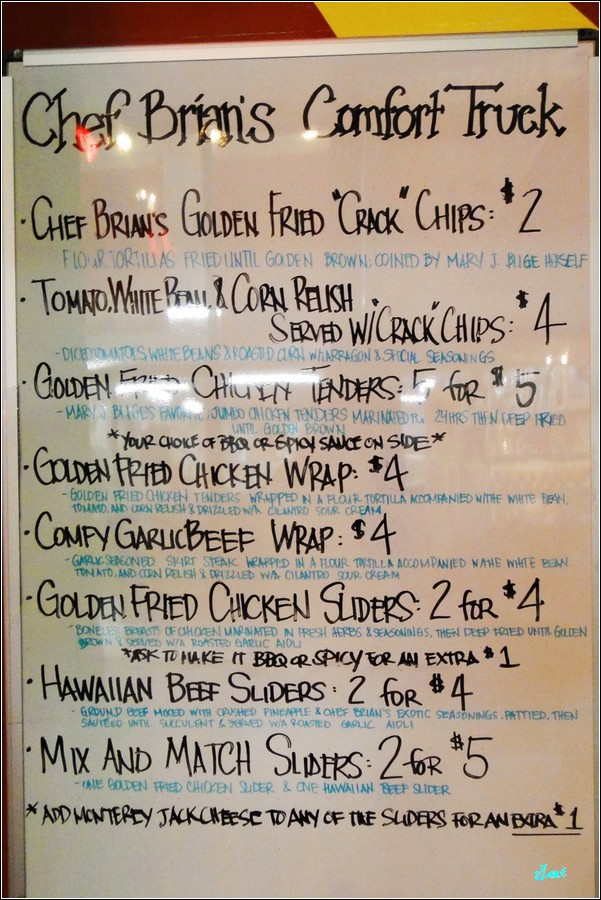 Chef Brian's Comfort Truck
· CHEF BRIAN'S GOLDEN FRIED "CRACK" CHIPS: $2
FLOUR TORTILLAS FRIED UNTIL GOLDEN BROWN; COINED BY MARY J. BLIGE HERSELF
· TOMATO, WHITE BEAN, & CORN RELISH
SERVED W/ "CRACK" CHIPS: $4
- DICED TOMATOES, WHITE BEANS & ROASTED CORN W/TARRAGON & SPECIAL SEASONINGS
· GOLDEN FRIED CHICKEN TENDERS: 5 for $5
- MARY J. BLIGE'S FAVORITE; JUMBO CHICKEN TENDERS MARINATED FOR 24HRS THEN DEEP FRIED
UNTIL GOLDEN BROWN
*YOUR CHOICE OF BBQ OR SPICY SAUCE ON SIDE*
· GOLDEN FRIED CHICKEN WRAP: $4
- GOLDEN FRIED CHICKEN TENDERS WRAPPED IN A FLOUR TORTILLA ACCOMPANIED W/THE WHITE BEAN,
TOMATO, AND CORN RELISH & DRIZZLED W/A CILANTRO SOUR CREAM
· COMFY GARLIC BEEF WRAP: $4
- GARLIC SEASONED SKIRT STEAK WRAPPED IN A FLOUR TORTILLA ACCOMPANIED W/THE WHITE BEAN
TOMATO, AND CORN RELISH & DRIZZLED W/A CILANTRO SOUR CREAM
· GOLDEN FRIED CHICKEN SLIDERS: 2 for $4
- BONELESS BREASTS OF CHICKEN MARINATED IN FRESH HERBS & SEASONINGS, THEN DEEP FRIED UNTIL GOLDEN
BROWN & SERVED W/A ROASTED GARLIC AIOLI
*ASK TO MAKE IT BBQ OR SPICY FOR AN EXTRA $1
· HAWAIIAN BEEF SLIDERS: 2 for $4
- GROUND BEEF MIXED WITH CRUSHED PINEAPPLE & CHEF BRIAN'S EXOTIC SEASONINGS, PATTIED, THEN
SAUTÉED UNTIL SUCCULENT & SERVED W/A ROASTED GARLIC AIOLI
· MIX AND MATCH SLIDERS: 2 for $5
- ONE GOLDEN FRIED CHICKEN SLIDER & ONE HAWAIIAN BEEF SLIDER
* ADD MONTEREY JACK CHEESE TO ANY OF THE SLIDERS FOR AN EXTRA $1